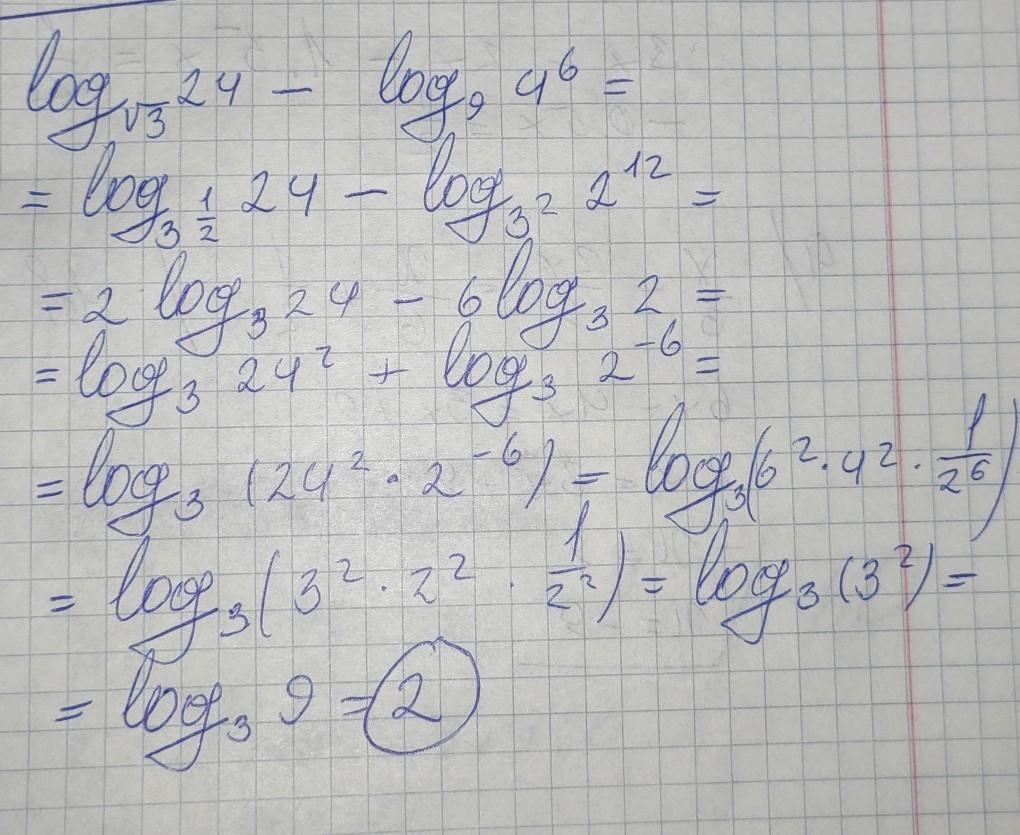 log_{√3} 24 − log_9 4^6 =
= log_{3^{1/2}} 24 − log_{3^2} 2^{12} =
= 2 log_3 24 − 6 log_3 2 =
= log_3 24^2 + log_3 2^{-6} =
= log_3 (24^2 · 2^{-6}) = log_3 (6^2 · 4^2 · 1/2^6)
= log_3 (3^2 · 2^2 · 1/2^2) = log_3 (3^2) =
= log_3 9 = 2